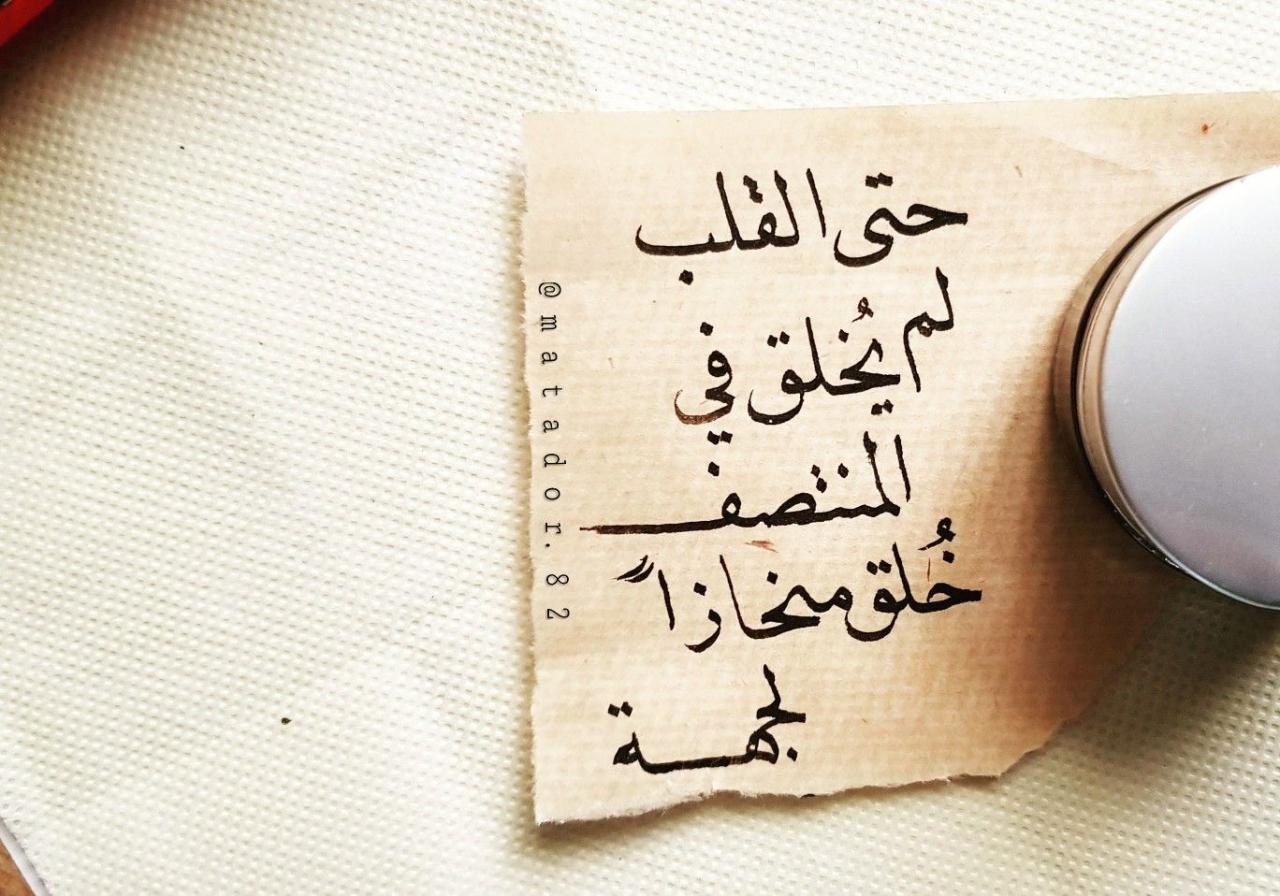 حتى القلب
لم يُخلق في
المنتصف
خُلق منحازاً
لجهة
@matador.82